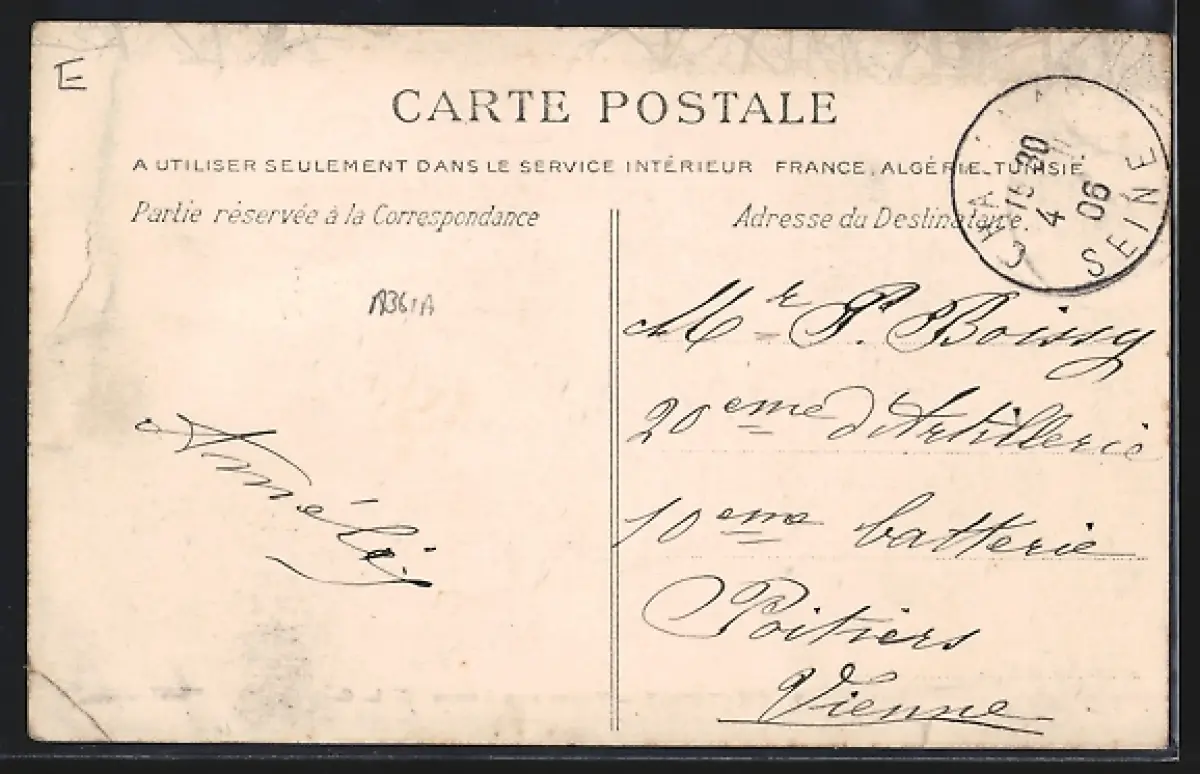 E
CARTE POSTALE
A UTILISER SEULEMENT DANS LE SERVICE INTÉRIEUR FRANCE, ALGÉRIE, TUNISIE
Partie réservée à la Correspondance
Adresse du Destinataire
15 30
4
06
SEINE
Mr P. Boissy
20eme d'Artillerie
10eme batterie
Poitiers
Vienne
Amélie